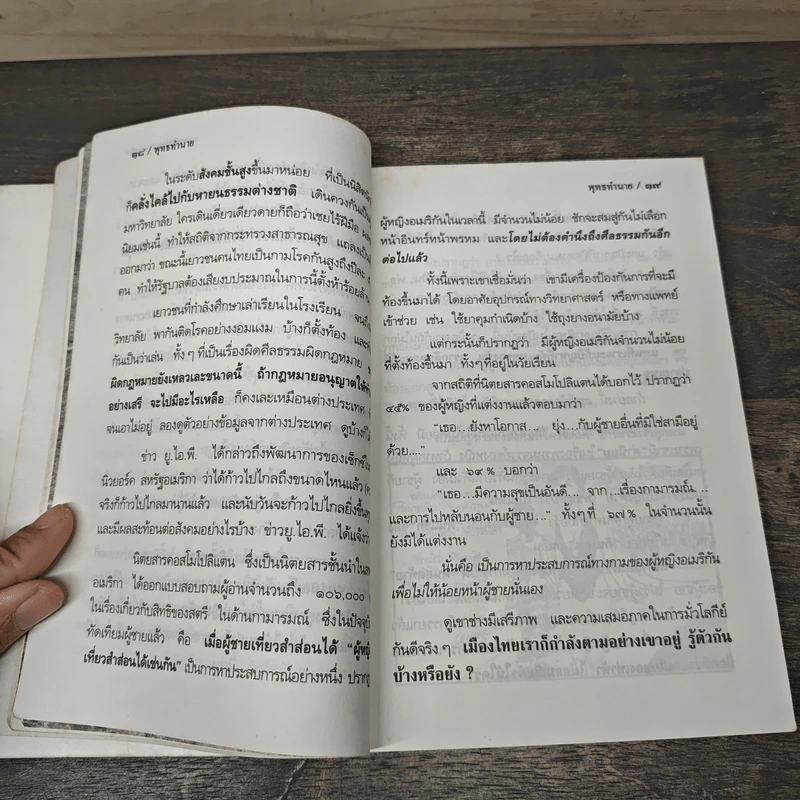 ๑๘ / พุทธทำนาย
ในระดับสังคมชั้นสูงขึ้นมาหน่อย ที่เป็นนิสิต
ก็คลั่งไคล้ไปกับหายนธรรมต่างชาติ เดินควงกันเป็น
มหาวิทยาลัย ใครเดินเดี่ยวเดียวดายก็ถือว่าเชยไร้ฝีมือ
นิยมเช่นนี้ ทำให้สถิติจากกระทรวงสาธารณสุข แถลงเป็น
ออกมาว่า ขณะนี้เยาวชนคนไทยเป็นกามโรคกันสูงถึงปีละ
คน ทำให้รัฐบาลต้องเสียงบประมาณในการนี้ตั้งห้าร้อยล้าน
เยาวชนที่กำลังศึกษาเล่าเรียนในโรงเรียน จนถึง
วิทยาลัย พากันติดโรคอย่างงอมแงม บ้างก็ตั้งท้อง และ
กันเป็นว่าเล่น ทั้งๆ ที่เป็นเรื่องผิดศีลธรรมผิดกฎหมาย
ผิดกฎหมายยังเหลวเละขนาดนี้ ถ้ากฎหมายอนุญาตให้
อย่างเสรี จะไปมีอะไรเหลือ ก็คงเละเหมือนต่างประเทศ
จนเอาไม่อยู่ ลองดูตัวอย่างข้อมูลจากต่างประเทศ ดูบ้าง
ข่าว ยู.ไอ.พี. ได้กล่าวถึงพัฒนาการของเซ็กซ์ใน
นิวยอร์ค สหรัฐอเมริกา ว่าได้ก้าวไปไกลถึงขนาดไหนแล้ว
จริงก็ก้าวไปไกลมานานแล้ว และนับวันจะก้าวไปไกลยิ่งขึ้น
และมีผลสะท้อนต่อสังคมอย่างไรบ้าง ข่าวยู.ไอ.พี. ได้แจ้งว่า
นิตยสารคอสโมโปลิแตน ซึ่งเป็นนิตยสารชั้นนำใน
อเมริกา ได้ออกแบบสอบถามผู้อ่านจำนวนถึง ๑๐๖,๐๐๐
ในเรื่องเกี่ยวกับสิทธิของสตรี ในด้านกามารมณ์ ซึ่งในปัจจุบัน
ทัดเทียมผู้ชายแล้ว คือ เมื่อผู้ชายเที่ยวสำส่อนได้ "ผู้หญิง
เที่ยวสำส่อนได้เช่นกัน" เป็นการหาประสบการณ์อย่างหนึ่ง ปรากฏ
พุทธทำนาย / ๑๙
ผู้หญิงอเมริกันในเวลานี้ มีจำนวนไม่น้อย ชักจะสมสู่กันไม่เลือก
หน้าอินทร์หน้าพรหม และโดยไม่ต้องคำนึงถึงศีลธรรมกันอีก
ต่อไปแล้ว
ทั้งนี้เพราะเขาเชื่อมั่นว่า เขามีเครื่องป้องกันการที่จะมี
ท้องขึ้นมาได้ โดยอาศัยอุปกรณ์ทางวิทยาศาสตร์ หรือทางแพทย์
เข้าช่วย เช่น ใช้ยาคุมกำเนิดบ้าง ใช้ถุงยางอนามัยบ้าง
แต่กระนั้นก็ปรากฏว่า มีผู้หญิงอเมริกันจำนวนไม่น้อย
ที่ตั้งท้องขึ้นมา ทั้งๆ ที่อยู่ในวัยเรียน
จากสถิติที่นิตยสารคอสโมโปลิแตนได้บอกไว้ ปรากฏว่า
๔๕% ของผู้หญิงที่แต่งงานแล้วตอบมาว่า
"เธอ...ยังหาโอกาส... ยุ่ง...กับผู้ชายอื่นที่มิใช่สามีอยู่
ด้วย...."
และ ๖๙ % บอกว่า
"เธอ...มีความสุขเป็นอันดี... จาก...เรื่องกามารมณ์...
และการไปหลับนอนกับผู้ชาย..." ทั้งๆ ที่ ๖๗% ในจำนวนนั้น
ยังมิได้แต่งงาน
นั่นคือ เป็นการหาประสบการณ์ทางกามของผู้หญิงอเมริกัน
เพื่อไม่ให้น้อยหน้าผู้ชายนั่นเอง
ดูเขาช่างมีเสรีภาพ และความเสมอภาคในการมั่วโลกีย์
กันดีจริงๆ เมืองไทยเราก็กำลังตามอย่างเขาอยู่ รู้ตัวกัน
บ้างหรือยัง ?